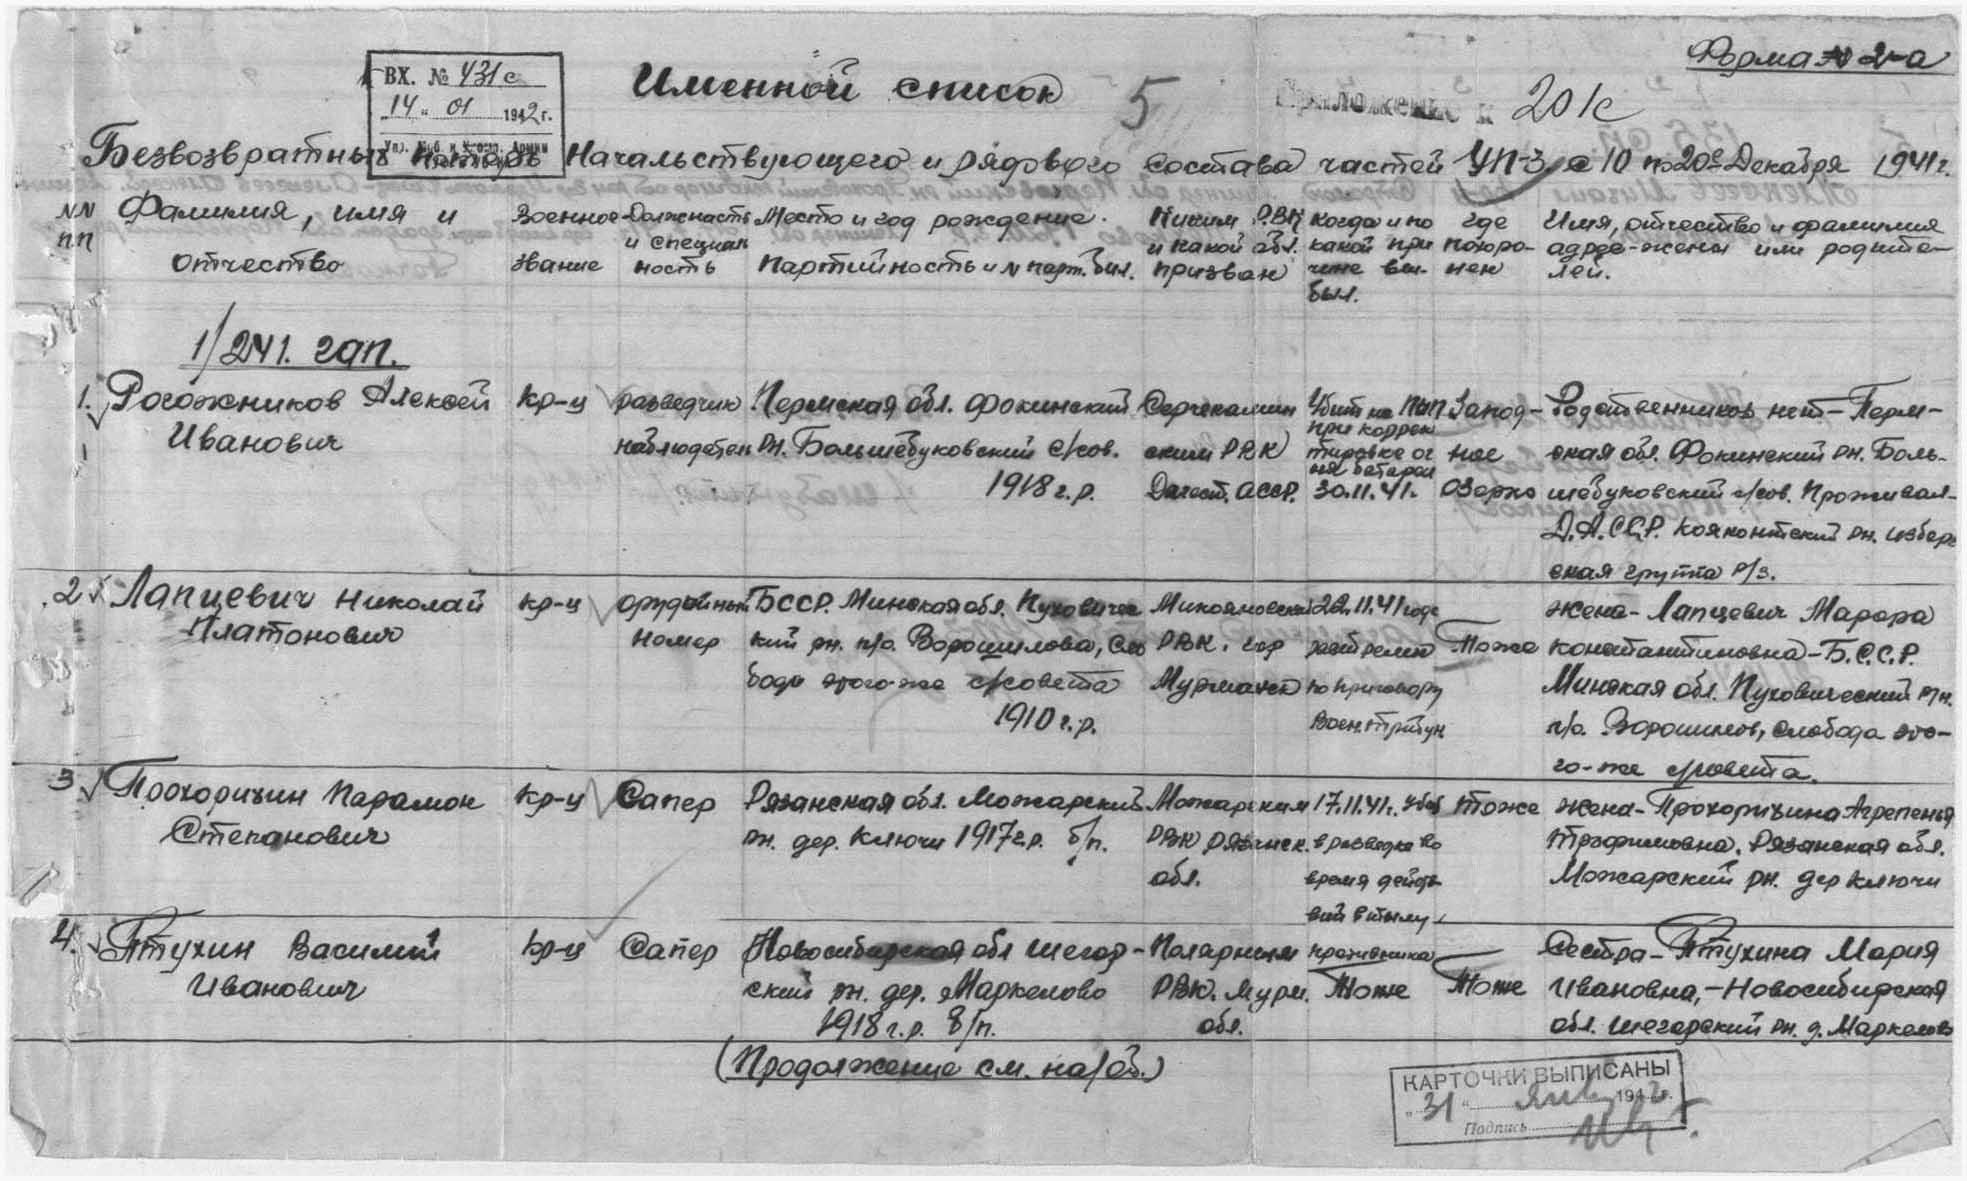 Форма № 2-а
ВХ. № 431с
"14" 01 1942 г.
Именной список
5
Приложение к 20/с
Безвозвратных потерь Начальствующего и рядового состава частей УП-3 с 10 по 20е Декабря 1941 г.
NN пп
Фамилия, имя и отчество
Военное звание
Должность и специальность
Место и год рождение. Партийность и N парт. бил.
Каким РВК и какой обл. призван
Когда и по какой причине выбыл.
где похоронен
Имя, отчество и фамилия адрес-жены или родителей.
1/241. гап.
1. Рогожников Алексей Иванович
1
кр-ц
разведчик наблюдатель
Пермская обл. Фокинский рн. Большебуковский с/сов. 1918 г.р.
РВК Дагест. АССР.
Убит на НП при корректировке огня батареи 30.11.41.
Запод-ное озерко
Родственников нет - Пермская обл. Фокинский рн. Большебуковский с/сов. Проживал-
Д.А.ССР. Коякентский рн. избербская группа р/з.
2 Лапцевич Николай Платонович
кр-ц
орудийный номер
БССР. Минская обл. Пуховичский рн. п/о. Ворошилова, Слобода этого-же с/совета 1910 г.р.
Микояновский РВК. гор Мурманск
22.11.41 года расстрелян по приговору Воен.трибун
Тоже
жена - Лапцевич Марфа Константиновна - Б.С.С.Р. Минская обл. Пуховический рн. п/о. Ворошилов, слобода это-
го-же с/совета.
3 Прохоризин Парамон Степанович
кр-ц
Сапер
Рязанская обл. Можарский рн. дер. Ключи 1917 г.р. б/п.
Можарским РВК Рязанск. обл.
17.11.41. убит в разведке во время действий в тылу противника
тоже
жена - Прохоризина Агрепенья Трофимовна. Рязанская обл. Можарский рн. дер Ключи
4. Птухин Василий Иванович
кр-ц
Сапер
Новосибирская обл Шегорский рн. дер. Маркелово 1918 г.р. б/п.
Полярным РВК. Мурм. обл.
Тоже
Тоже
Сестра - Птухина Мария Ивановна, - Новосибирская обл. Шегарский рн. д. Маркелово
(Продолжение см. на/об.)
КАРТОЧКИ ВЫПИСАНЫ
"31" янв 1942 г.
Подпись